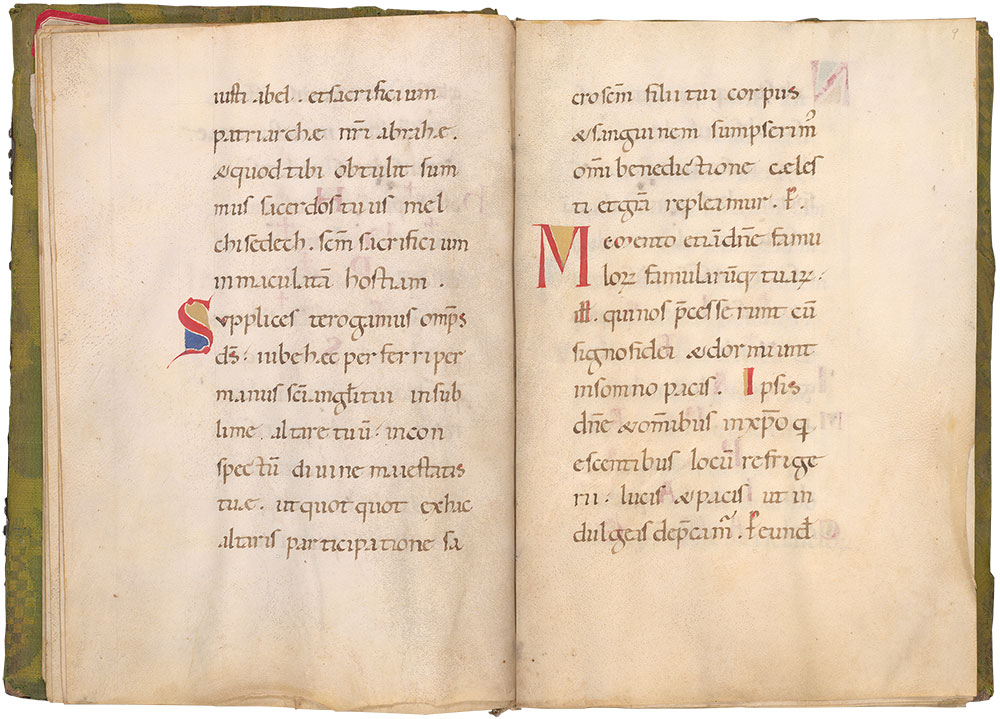 iusti abel. et sacrificium
patriarchæ nr̄i abrahæ.
& quod tibi obtulit sum
mus sacerdos tuus mel
chisedech. sc̄m sacrificium
inmaculatā hostiam.
Supplices te rogamus omp̄s
ds̄. iube hęc perferri per
manus sc̄i angl̄i tui in sub
lime altare tuū. in con
spectū divine maiestatis
tuæ. ut quot quot ex hac
altaris participatione sa
9
crosc̄m filii tui corpus
& sanguinem sumpserim᷒
om̄i benedictione cæles
ti et grā repleamur. P̄.
Memento etiā dn̄e famu
lorꝝ famularūq; tuarꝝ.
ill̄. qui nos p̄cesserunt cū
signo fidei & dormiunt
in somno pacis. Ipsis
dn̄e & om̄ibus in xp̄o q
escentibus locū refrige
rii. lucis & pacis ut in
dulgeas dep̄cam᷒. P̄ eund̄